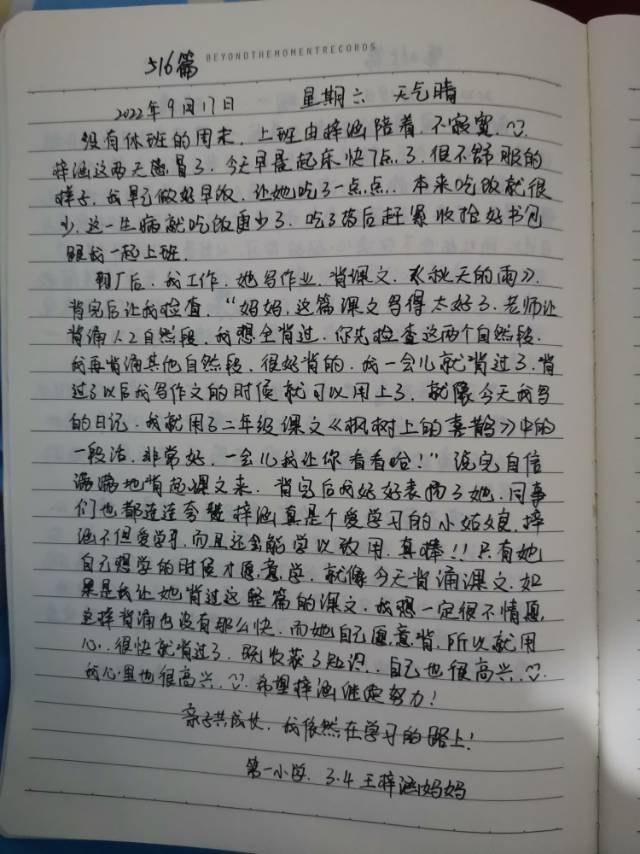 516篇 BEYONDTHEMOMENTRECORDS
2022年9月17日 星期六 天气晴
没有休班的周末，上班由梓涵陪着，不寂寞，
梓涵这两天感冒了，今天早晨起床快7点了，很不舒服的
样子，我早已做好早饭，让她吃了一点点，本来吃饭就很
少，这一生病就吃饭更少了，吃了药后赶紧收拾好书包
跟我一起上班。
到厂后，我工作，她写作业，背课文，《秋天的雨》，
背完后让我检查，“妈妈，这篇课文写得太好了，老师让
背诵1、2自然段，我想全背过，你先检查这两个自然段，
我再背诵其他自然段，很好背的，我一会儿就背过了，背
过了以后我写作文的时候就可以用上了，就像今天我写
的日记，我就用了二年级课文《枫树上的喜鹊》中的
一段话，非常好，一会儿我让你看看哈！”说完自信
满满地背起课文来，背完后我好好表扬了她，同事
们也都连连夸赞梓涵真是个爱学习的小姑娘，梓
涵不但爱学习，而且还会能学以致用，真棒！！只有她
自己想学的时候才愿意学，就像今天背诵课文，如
果是我让她背过这整篇的课文，我想一定很不情愿，
这样背诵也没有那么快，而她自己愿意背，所以就用
心，很快就背过了，既收获了知识，自己也很高兴，
我心里也很高兴，希望梓涵继续努力！
亲子共成长，我依然在学习的路上！
第一小学，3.4王梓涵妈妈